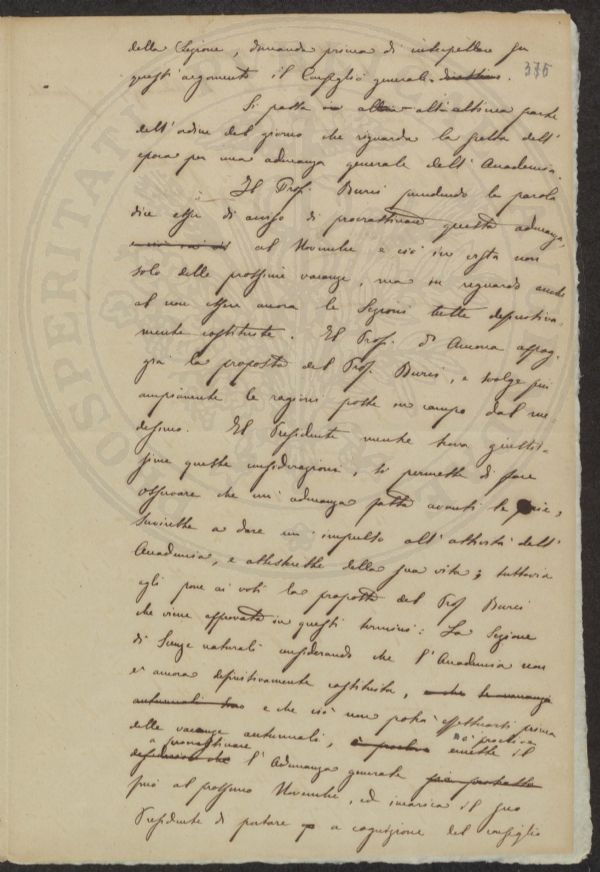 della Sezione, domanda prima di interpellare su
375
questi argomenti il Consiglio generale direttivo.
Si passa in altra all'ultima parte
dell'ordine del giorno che riguarda la scelta dell'
epoca per una adunanza generale dell'Accademia.
Il Prof. Burci prendendo la parola
dice esser di avviso di procrastinare questa adunanza,
al Novembre e ciò in vista non
solo delle prossime vacanze, ma in riguardo anche
al non essere ancora le Sezioni tutte definitiva-
mente costituite. Il Prof. D'Ancona appog-
gia la proposta del Prof. Burci, e svolge più
ampiamente le ragioni poste in campo dal me
desimo. Il Presidente mentre trova giustis-
sime queste considerazioni, si permette di fare
osservare che un'adunanza fatta avanti le ferie,
servirebbe a dare un impulso all'attività dell'
Accademia, e attesterebbe della sua vita; tuttavia
egli pone ai voti la proposta del Prof Burci
che viene approvata in questi termini: La Sezione
di Scienze naturali considerando che l'Accademia non
è ancora definitivamente costituita, e che le vacanze
autunnali sono e che ciò non potrà effettuarsi prima
delle vacanze autunnali, emette il
a procrastinare
l'Adunanza generale
più al prossimo Novembre, ed incarica il suo
Presidente di portare a cognizione del consiglio